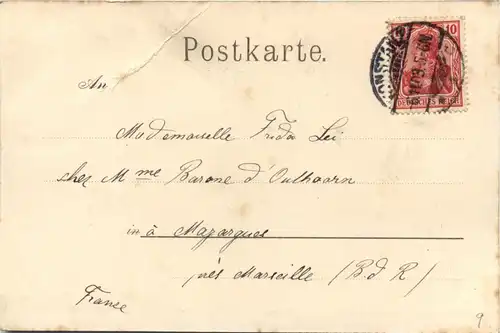 Postkarte.
10
DEUTSCHES REICH
An
Mademoiselle Frida Lei
chez Mme Barone d'Oulhoorn
in à Mazargues
près Marseille (B.d.R)
France
9